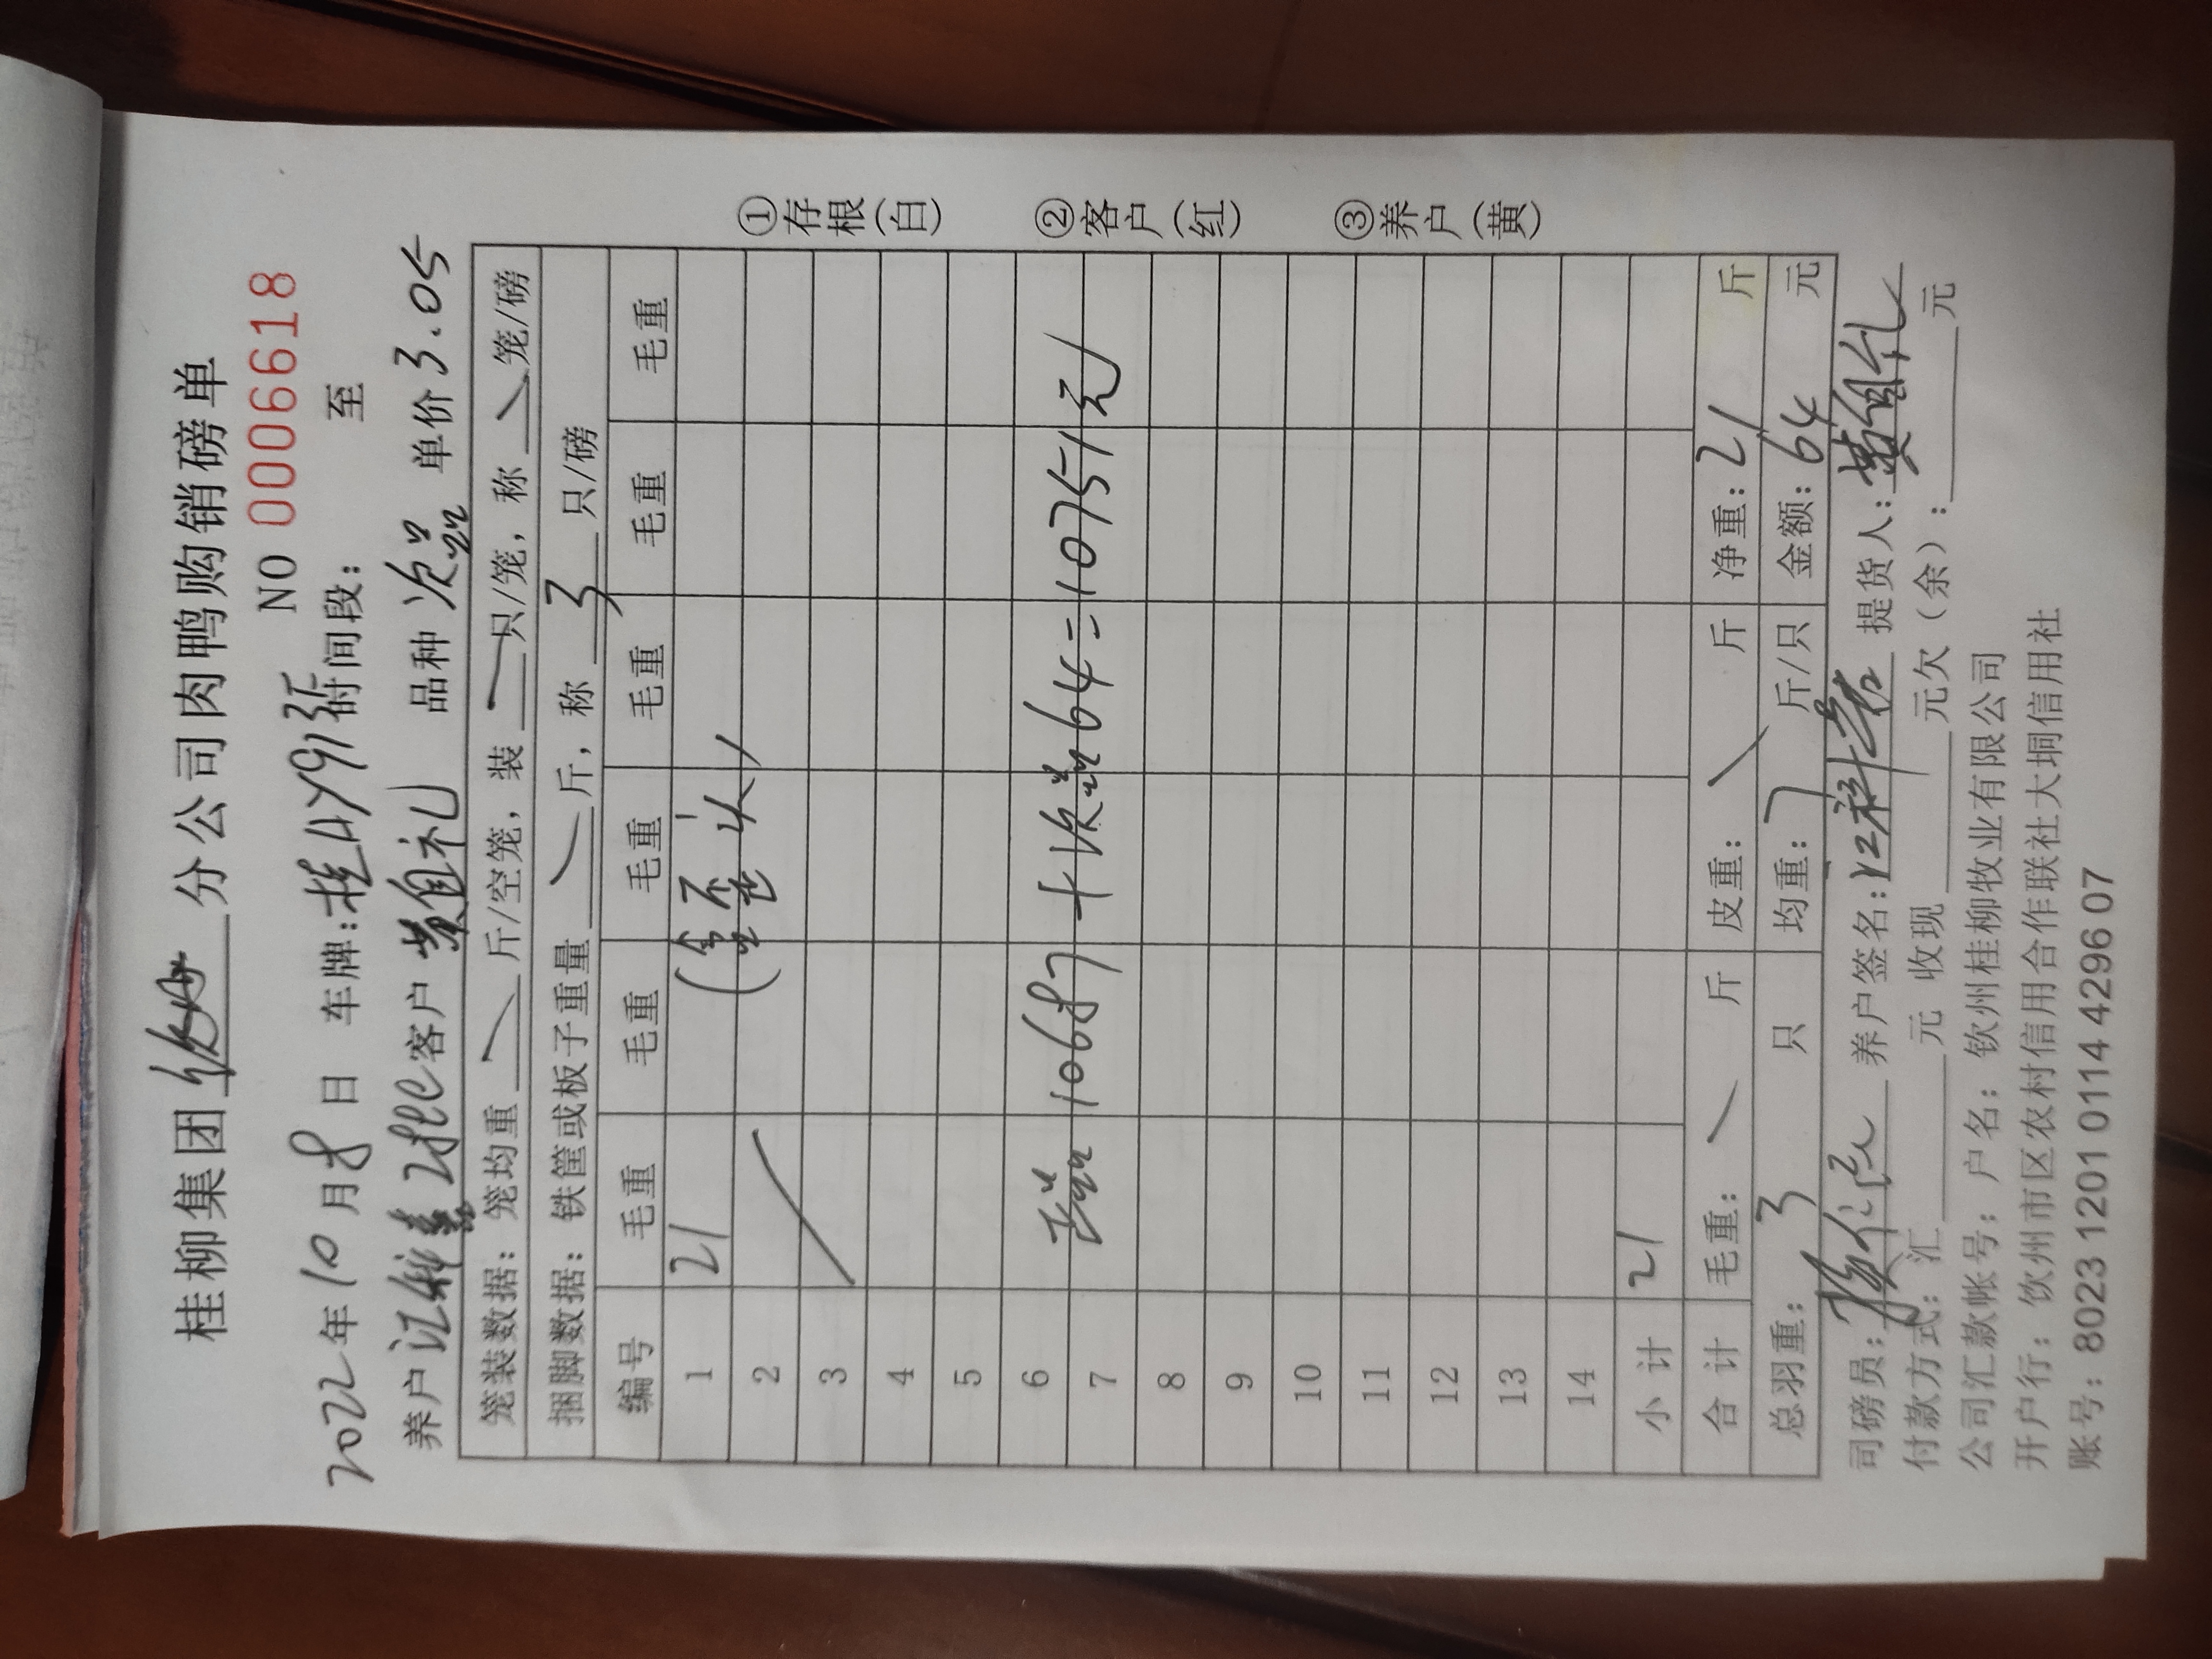 桂柳集团 钦州 分公司肉鸭购销磅单
NO 0006618
2022年10月8日 车牌: 桂 时间段: 至
养户 客户 黄自礼 品种 次品 单价 3.05
笼装数据: 笼均重 斤/空笼, 装 只/笼, 称 笼/磅
捆脚数据: 铁筐或板子重量 斤, 称 3 只/磅
编号 毛重 毛重 毛重 毛重 毛重 毛重
1 21 (全歪头)
2
3
4
5
6
7 正品 10687 + 次品 64 = 10751元
8
9
10
11
12
13
14
小计 21
合计 毛重: 斤 皮重: 斤 净重: 21 斤
总羽重: 3 只 均重: 7 斤/只 金额: 64 元
司磅员: 养户签名: 提货人: 黄自礼
付款方式: 汇 元 收现 元欠(余): 元
公司汇款帐号: 户名: 钦州桂柳牧业有限公司
开户行: 钦州市区农村信用合作联社大垌信用社
账号: 8023 1201 0114 4296 07
①存根(白)
②客户(红)
③养户(黄)